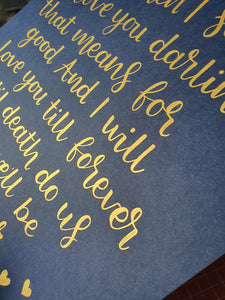 I
love you darlin
that means for
good And I will
love you till forever
death do us
we'll be